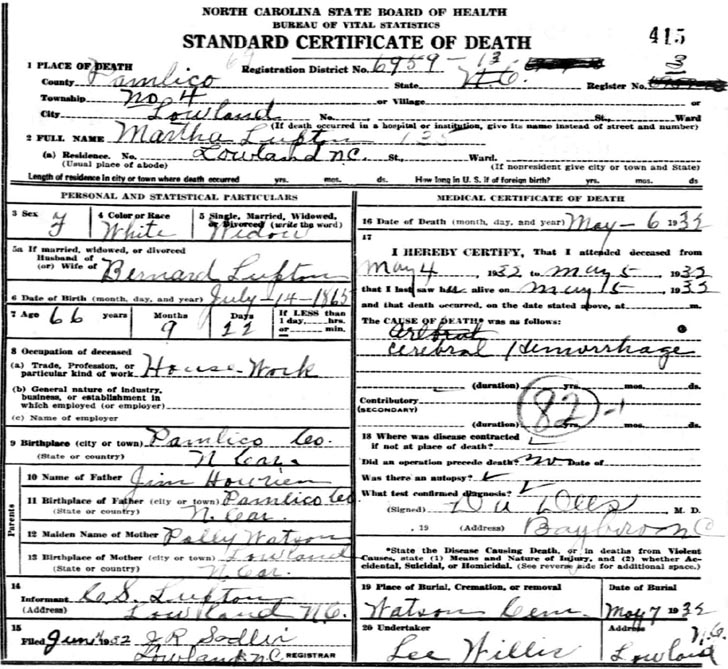 NORTH CAROLINA STATE BOARD OF HEALTH
BUREAU OF VITAL STATISTICS
STANDARD CERTIFICATE OF DEATH
415
1 PLACE OF DEATH
Registration District No. 6959-13
3
County Pamlico State N.C. Register No.
Township No 4 or Village or
City Lowland No. St., Ward
(If death occurred in a hospital or institution, give its name instead of street and number)
2 FULL NAME Martha Lupton 135
(a) Residence. No. Lowland N.C. St., Ward.
(Usual place of abode) (If nonresident give city or town and State)
Length of residence in city or town where death occurred yrs. mos. ds. How long in U. S. if of foreign birth? yrs. mos. ds.
PERSONAL AND STATISTICAL PARTICULARS
3 Sex F 4 Color or Race White 5 Single, Married, Widowed, or Divorced (write the word) Widow
5a If married, widowed, or divorced
Husband of
(or) Wife of Bernard Lupton
6 Date of Birth (month, day, and year) July-14-1865
7 Age 66 years Months 9 Days 22 If LESS than 1 day, hrs. or min.
8 Occupation of deceased
(a) Trade, Profession, or particular kind of work House-Work
(b) General nature of industry, business, or establishment in which employed (or employer)
(c) Name of employer
9 Birthplace (city or town) Pamlico Co.
(State or country) N Car.
Parents
10 Name of Father Jim
11 Birthplace of Father (city or town) Pamlico Co
(State or country) N. Car.
12 Maiden Name of Mother Polly Watson
13 Birthplace of Mother (city or town) Lowland
(State or country) N Car.
14
Informant C S. Lupton
(Address) Lowland N.C.
15
Filed June 1932 J R Sadler
Lowland NC REGISTRAR
MEDICAL CERTIFICATE OF DEATH
16 Date of Death (month, day, and year) May-6 1932
17
I HEREBY CERTIFY, That I attended deceased from
May 4, 1932 to May 5, 1932
that I last saw her alive on May 5 1932
and that death occurred, on the date stated above, at m.
The CAUSE OF DEATH* was as follows:
Cerebral Hemorrhage
(duration) yrs. mos. ds.
Contributory
(SECONDARY)
82-1
(duration) yrs. mos. ds.
18 Where was disease contracted
if not at place of death?
Did an operation precede death? no Date of
Was there an autopsy?
What test confirmed diagnosis?
(Signed) M. D.
, 19 (Address) Bayboro NC
*State the Disease Causing Death, or in deaths from Violent
Causes, state (1) Means and Nature of Injury, and (2) whether Ac-
cidental, Suicidal, or Homicidal. (See reverse side for additional space.)
19 Place of Burial, Cremation, or removal Date of Burial
Watson Cem May 7 1932
20 Undertaker Address
Lee Willis Lowland N.C.